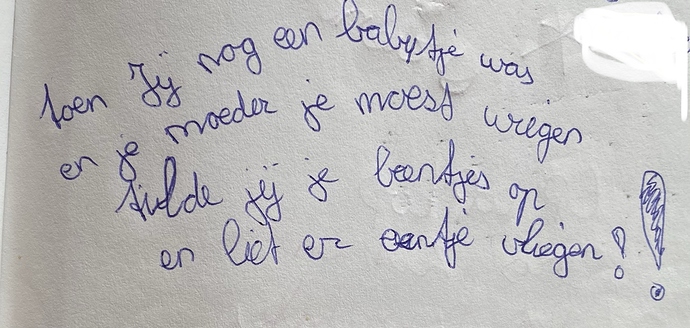 toen jij nog een babytje was
en je moeder je moest wiegen
tilde jij je beentjes op
en liet er eentje vliegen!!